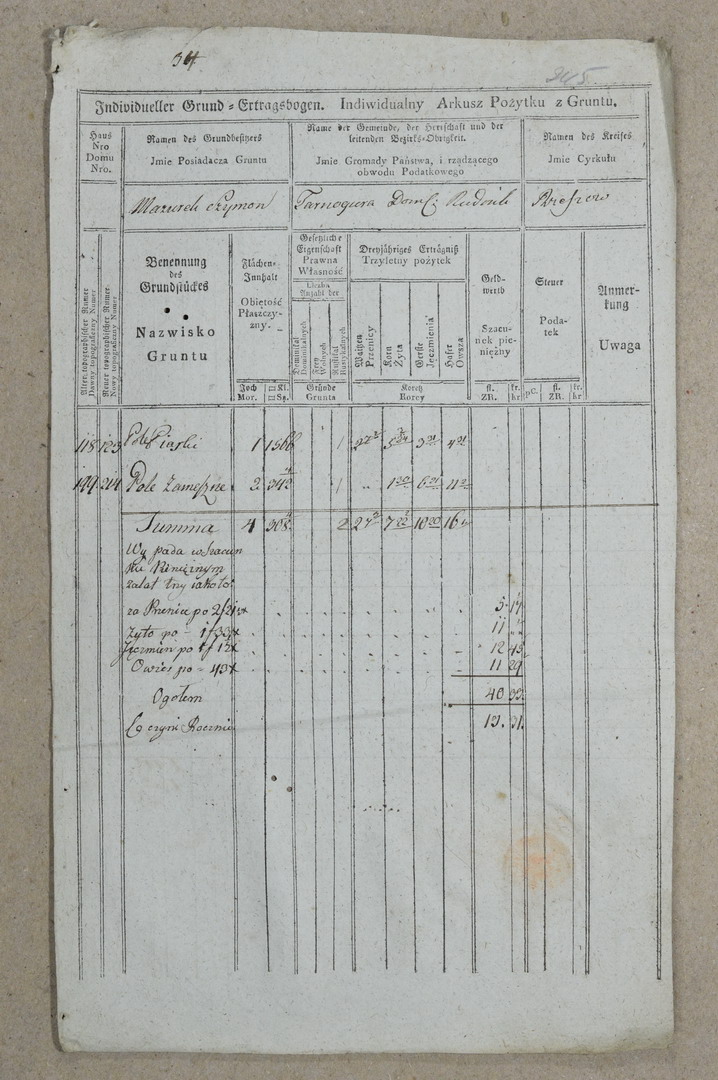 34
345
Individueller Grund = Ertragsbogen. Indiwidualny Arkusz Pożytku z Gruntu.
Haus Nro Domu Nro.
Namen des Grundbesitzers
Jmie Posiadacza Gruntu
Name der Gemeinde, der Herrschaft und der
leitenden Bezirks=Obrigkeit.
Jmie Gromady Państwa, i rządzącego
obwodu Podatkowego
Namen des Kreises
Jmie Cyrkułu
Mazurek Szymon
Tarnogura Dom: Rudnik
Rzeszow
Alter topographischer Numer
Dawny topograficzny Numer
Neuer topographischer Numer.
Nowy topograficzny Numer
Benennung
des
Grundstückes
Nazwisko
Gruntu
Flächen=
Innhalt
Obiętość
Płaszczy-
zny.
Joch Mor.
□ Kl. □ Są.
Gesetzliche
Eigenschaft
Prawna
Własność
Anzahl der
Dominikal
Dominikalnych
Frey
Wolnych
Rustikal
Rustykalnych
Gründe
Grunta
Dreyjähriges Erträgniß
Trzyletny pożytek
Waitzen
Pszenicy
Korn
Żyta
Gerste
Jęczmienia
Hafer
Owsa
Koretz
Korcy
Geld=
werth
Szacu-
nek pie-
niężny
fl. ZR.
kr. kr
Steuer
Poda-
tek
pC.
fl. ZR.
kr. kr
Anmer-
kung
Uwaga
118 123 Pole Piaski 1 1566 1
199 214 Pole Zameszne 2 342 1
Summa 4 308 2
Wypada w Szacun
ku Pienieznym
za lat trzy iako to:
za Psenice po 2/21x 5 17
Zyto po - 1f 33x 11
Jęczmien po 1f 12x 12 45
Owies po - 43x 11 29
Ogołem 40 33
Co czyni Rocznie 13. 31.